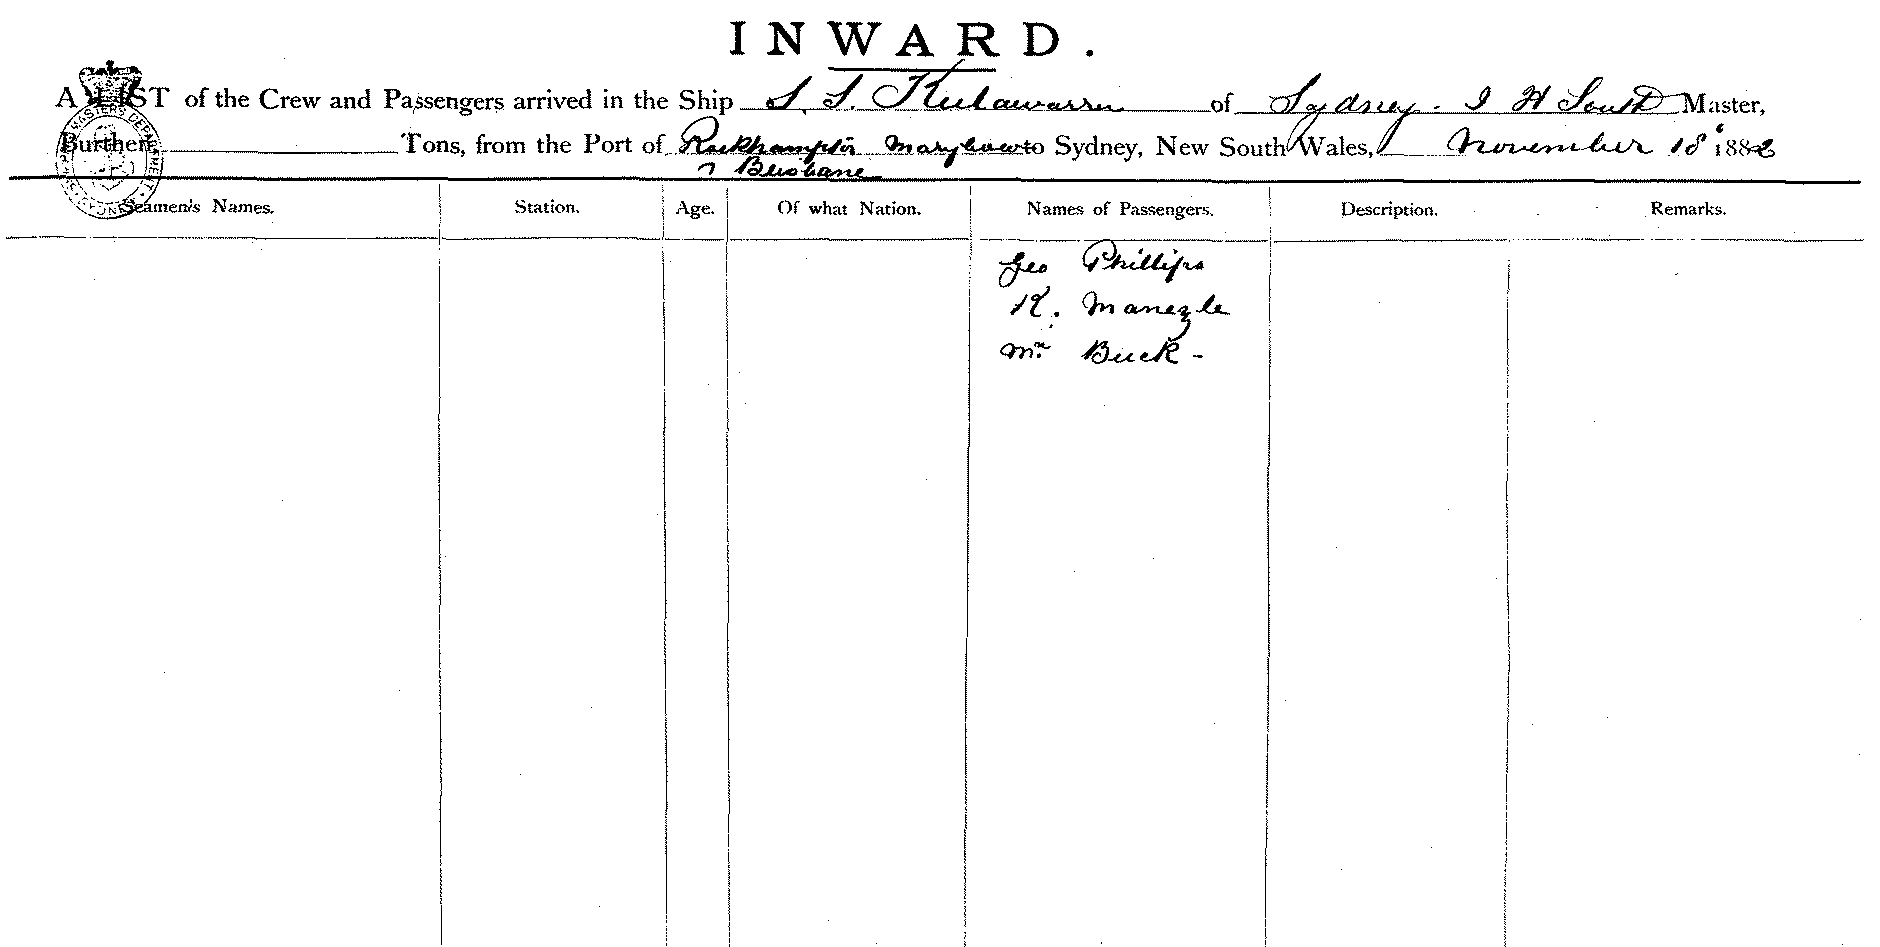 INWARD.
A LIST of the Crew and Passengers arrived in the Ship S. S. Keilawarra of Sydney. I H South Master,
Burthen Tons, from the Port of Rockhampton Marybow to Sydney, New South Wales, November 18 188
& Brisbane
Seamen's Names. Station. Age. Of what Nation. Names of Passengers. Description. Remarks.
Geo Phillips
K. Manezle
Mr. Buck -